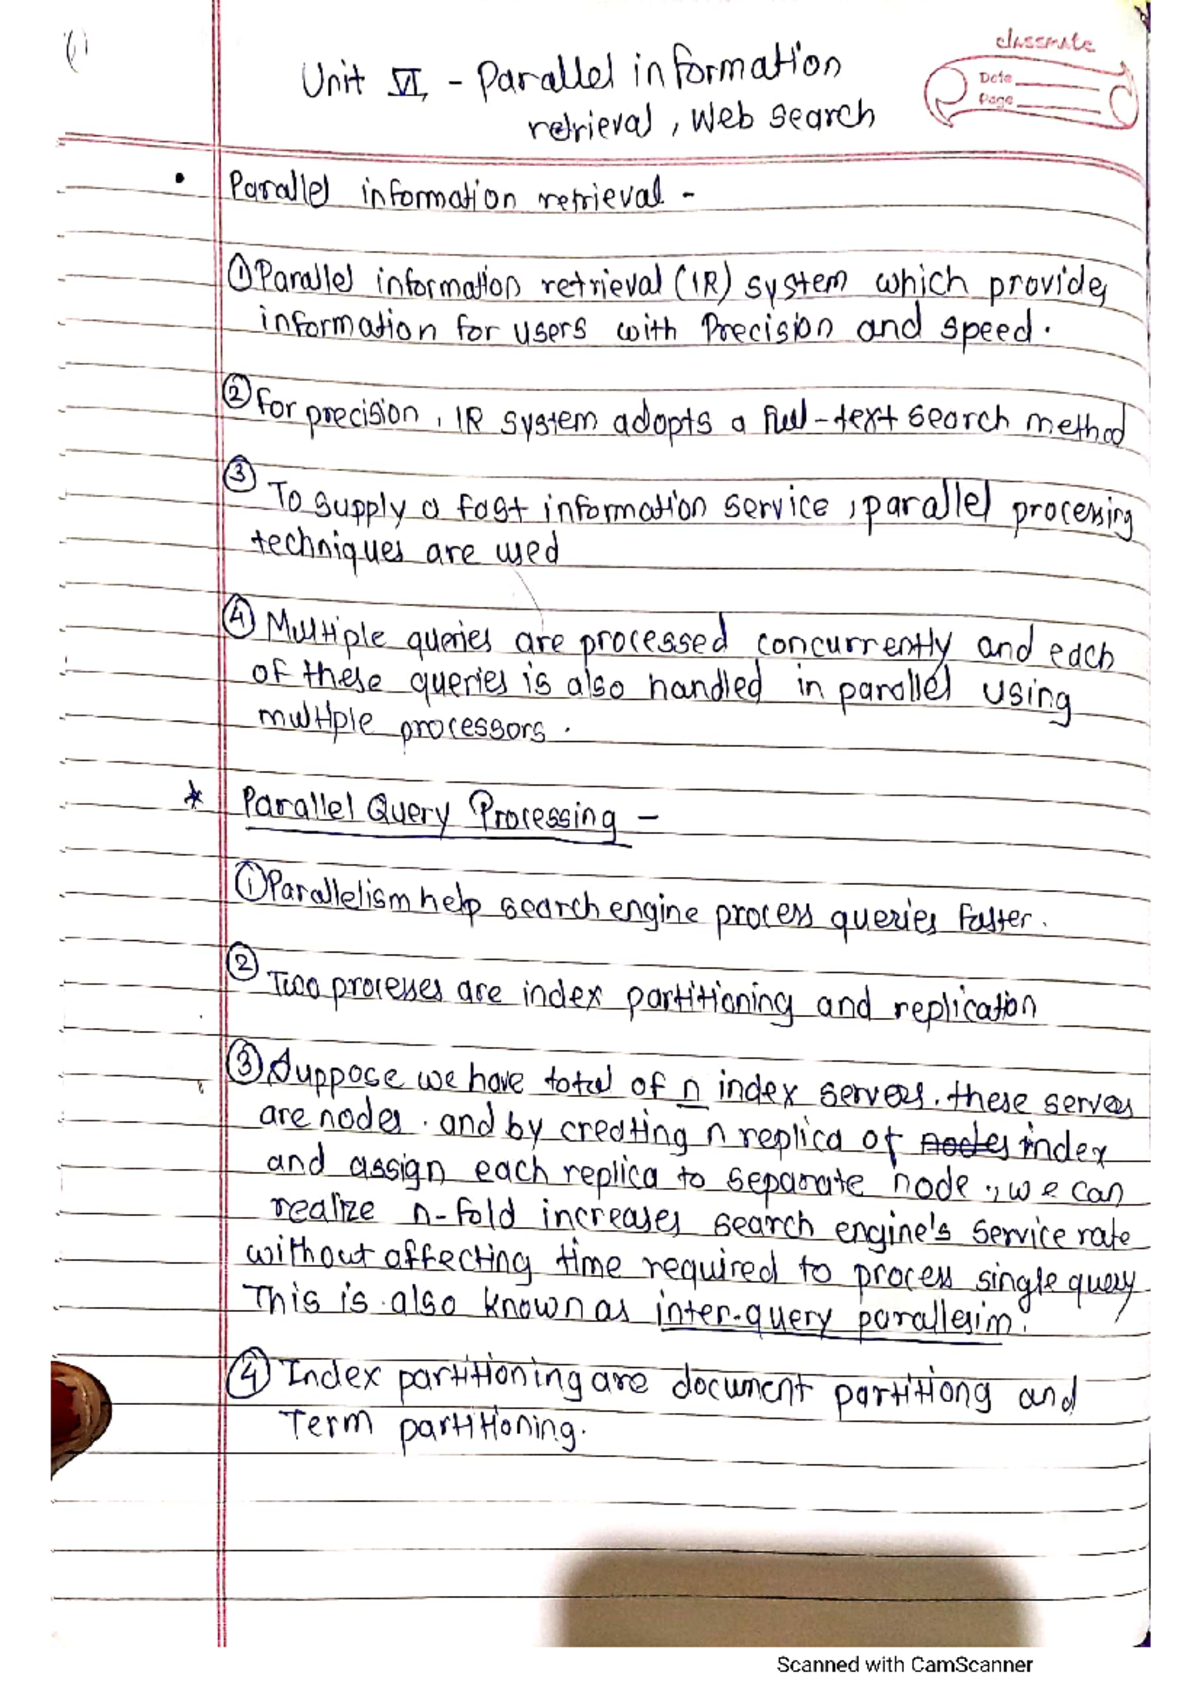 (1)
classmate
Date
Page
Unit VI - Parallel information
retrieval, Web search
• Parallel information retrieval -
① Parallel information retrieval (IR) system which provides
information for users with Precision and speed.
② for precision, IR system adopts a full-text search method
③ To supply a fast information service, parallel processing
techniques are used
④ Multiple queries are processed concurrently and each
of these queries is also handled in parallel using
multiple processors.
* Parallel Query Processing -
① Parallelism help search engine process queries faster.
② Two processes are index partitioning and replication
③ Suppose we have total of n index servers. these servers
are nodes. and by creating n replica of nodes index
and assign each replica to separate node., we can
realize n-fold increases search engine's service rate
without affecting time required to process single query
This is also known as inter-query parallesim.
④ Index partitioning are document partitiong and
Term partitioning.
Scanned with CamScanner